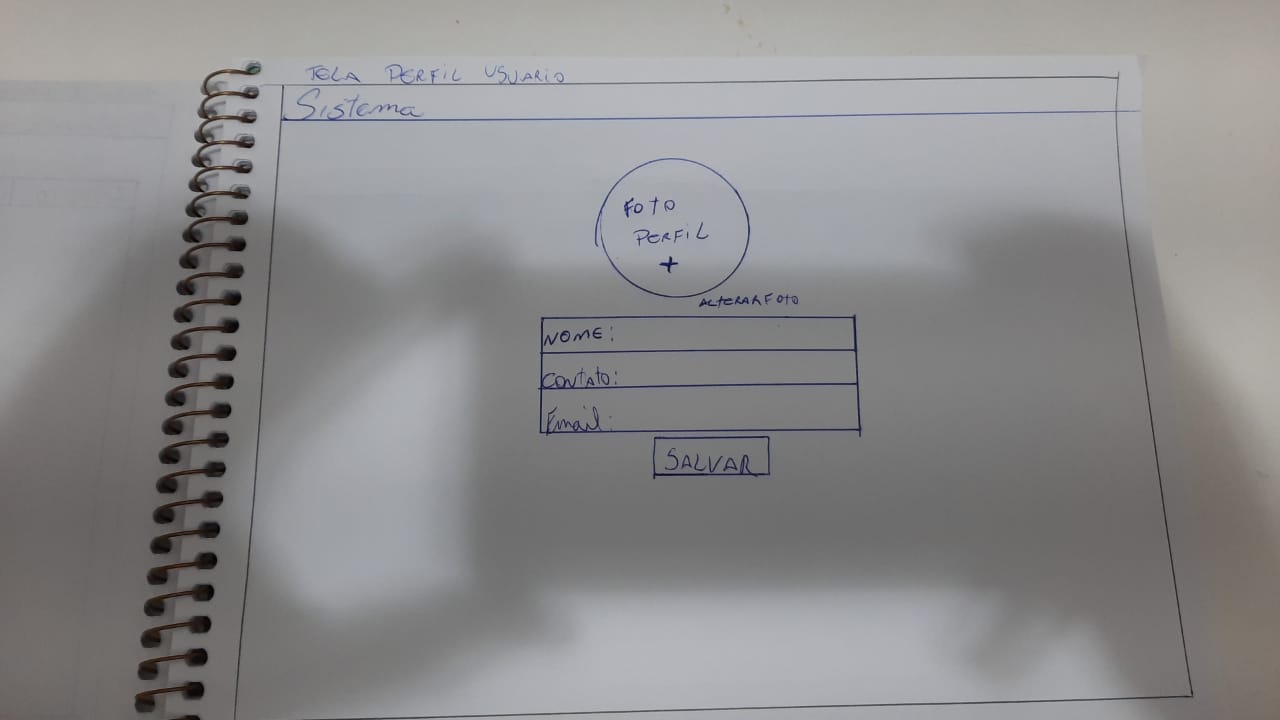 TELA PERFIL USUARIO
Sistema
FOTO
PERFIL
+
ALTERAR FOTO
NOME:
CONTATO:
Email:
SALVAR